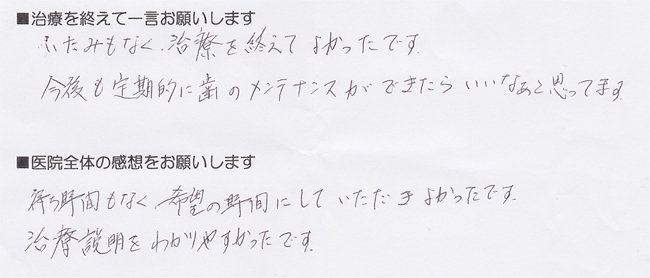 ■治療を終えて一言お願いします
いたみもなく、治療を終えてよかったです。
今後も定期的に歯のメンテナンスができたらいいなあと思ってます。
■医院全体の感想をお願いします
待ち時間もなく、希望の時間にしていただきよかったです。
治療説明をわかりやすかったです。